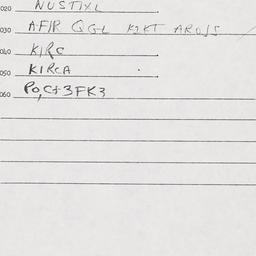 020 NUSTIXL
030 AFIR GGL KIKT AROSS
040 KIRC
050 KIRCA
060 PO,C+3FK3